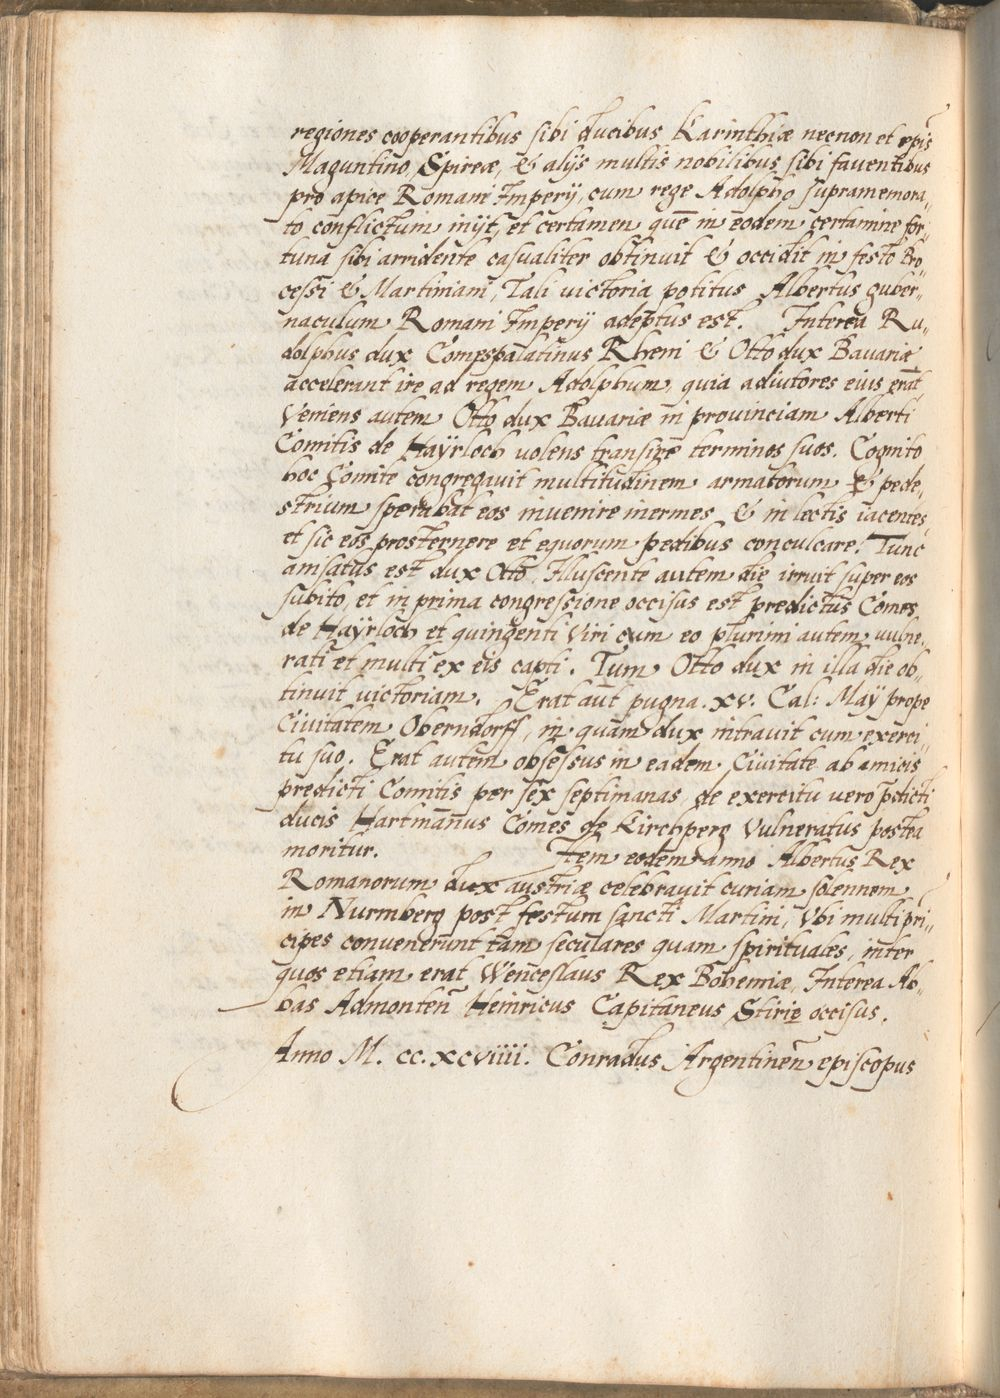 regiones cooperantibus sibi ducibus Karinthiæ necnon et epis̄
Maguntino, Spireæ, & alijs multis nobilibus sibi faventibus
pro apice Romani Imperij, cum rege Adolpho supramemora„
to conflictum inijt, et certamen quē in eodem certamine for„
tuna sibi arridente casualiter obtinuit & occidit in festo Pro„
cessi & Martiniani, Tali victoria potitus Albertus guber„
naculum Romani Imperij adeptus est. Interea Ru„
dolphus dux Comespalatinus Rheni & Otto dux Bavariæ
accelerant ire ad regem Adolphum, quia adiutores eius erāt
Veniens autem Otto dux Bavariæ in provinciam Alberti
Comitis de Haÿrloch volens transire terminos suos. Cognito
hoc Comite congregavit multitudinem armatorum & pede„
strium sperabat eos invenire inermes & in lectis iacentes,
et sic eos prosternere et equorum pedibus conculcare. Tunc
amsatus est dux Oto, Illuscente autem die irruit super eos
subito, et in prima congressione occisus est predictus Comes
de Haÿrloch et quingenti viri cum eo plurimi autem vulne„
rati et multi ex eis capti. Tum Otto dux in illa die ob„
tinuit victoriam. Erat aūt pugna .xv. Cal: Maÿ prope
Civitatem Oberndorff, in quam dux intravit cum exerci„
tu suo. Erat autem obsessus in eadem Civitate ab amicis
predicti Comitis per sex septimanas, de exercitu vero p̄dicti
ducis Hartmannus Comes de Kirchperg Vulneratus postea
moritur. Item eodem anno Albertus Rex
Romanorum dux austriæ celebravit curiam solennem
in Nurmberg post festum sancti Martini, Vbi multi pri„
cipes convenerunt tam seculares quam spirituales, inter
quos etiam erat Wenceslaus Rex Bohemiæ, Interea Ab„
bas Admonten̄ Heinricus Capitaneus Stirie occisus.
Anno M. cc.xcviiii. Conradus Argentinen̄ episcopus